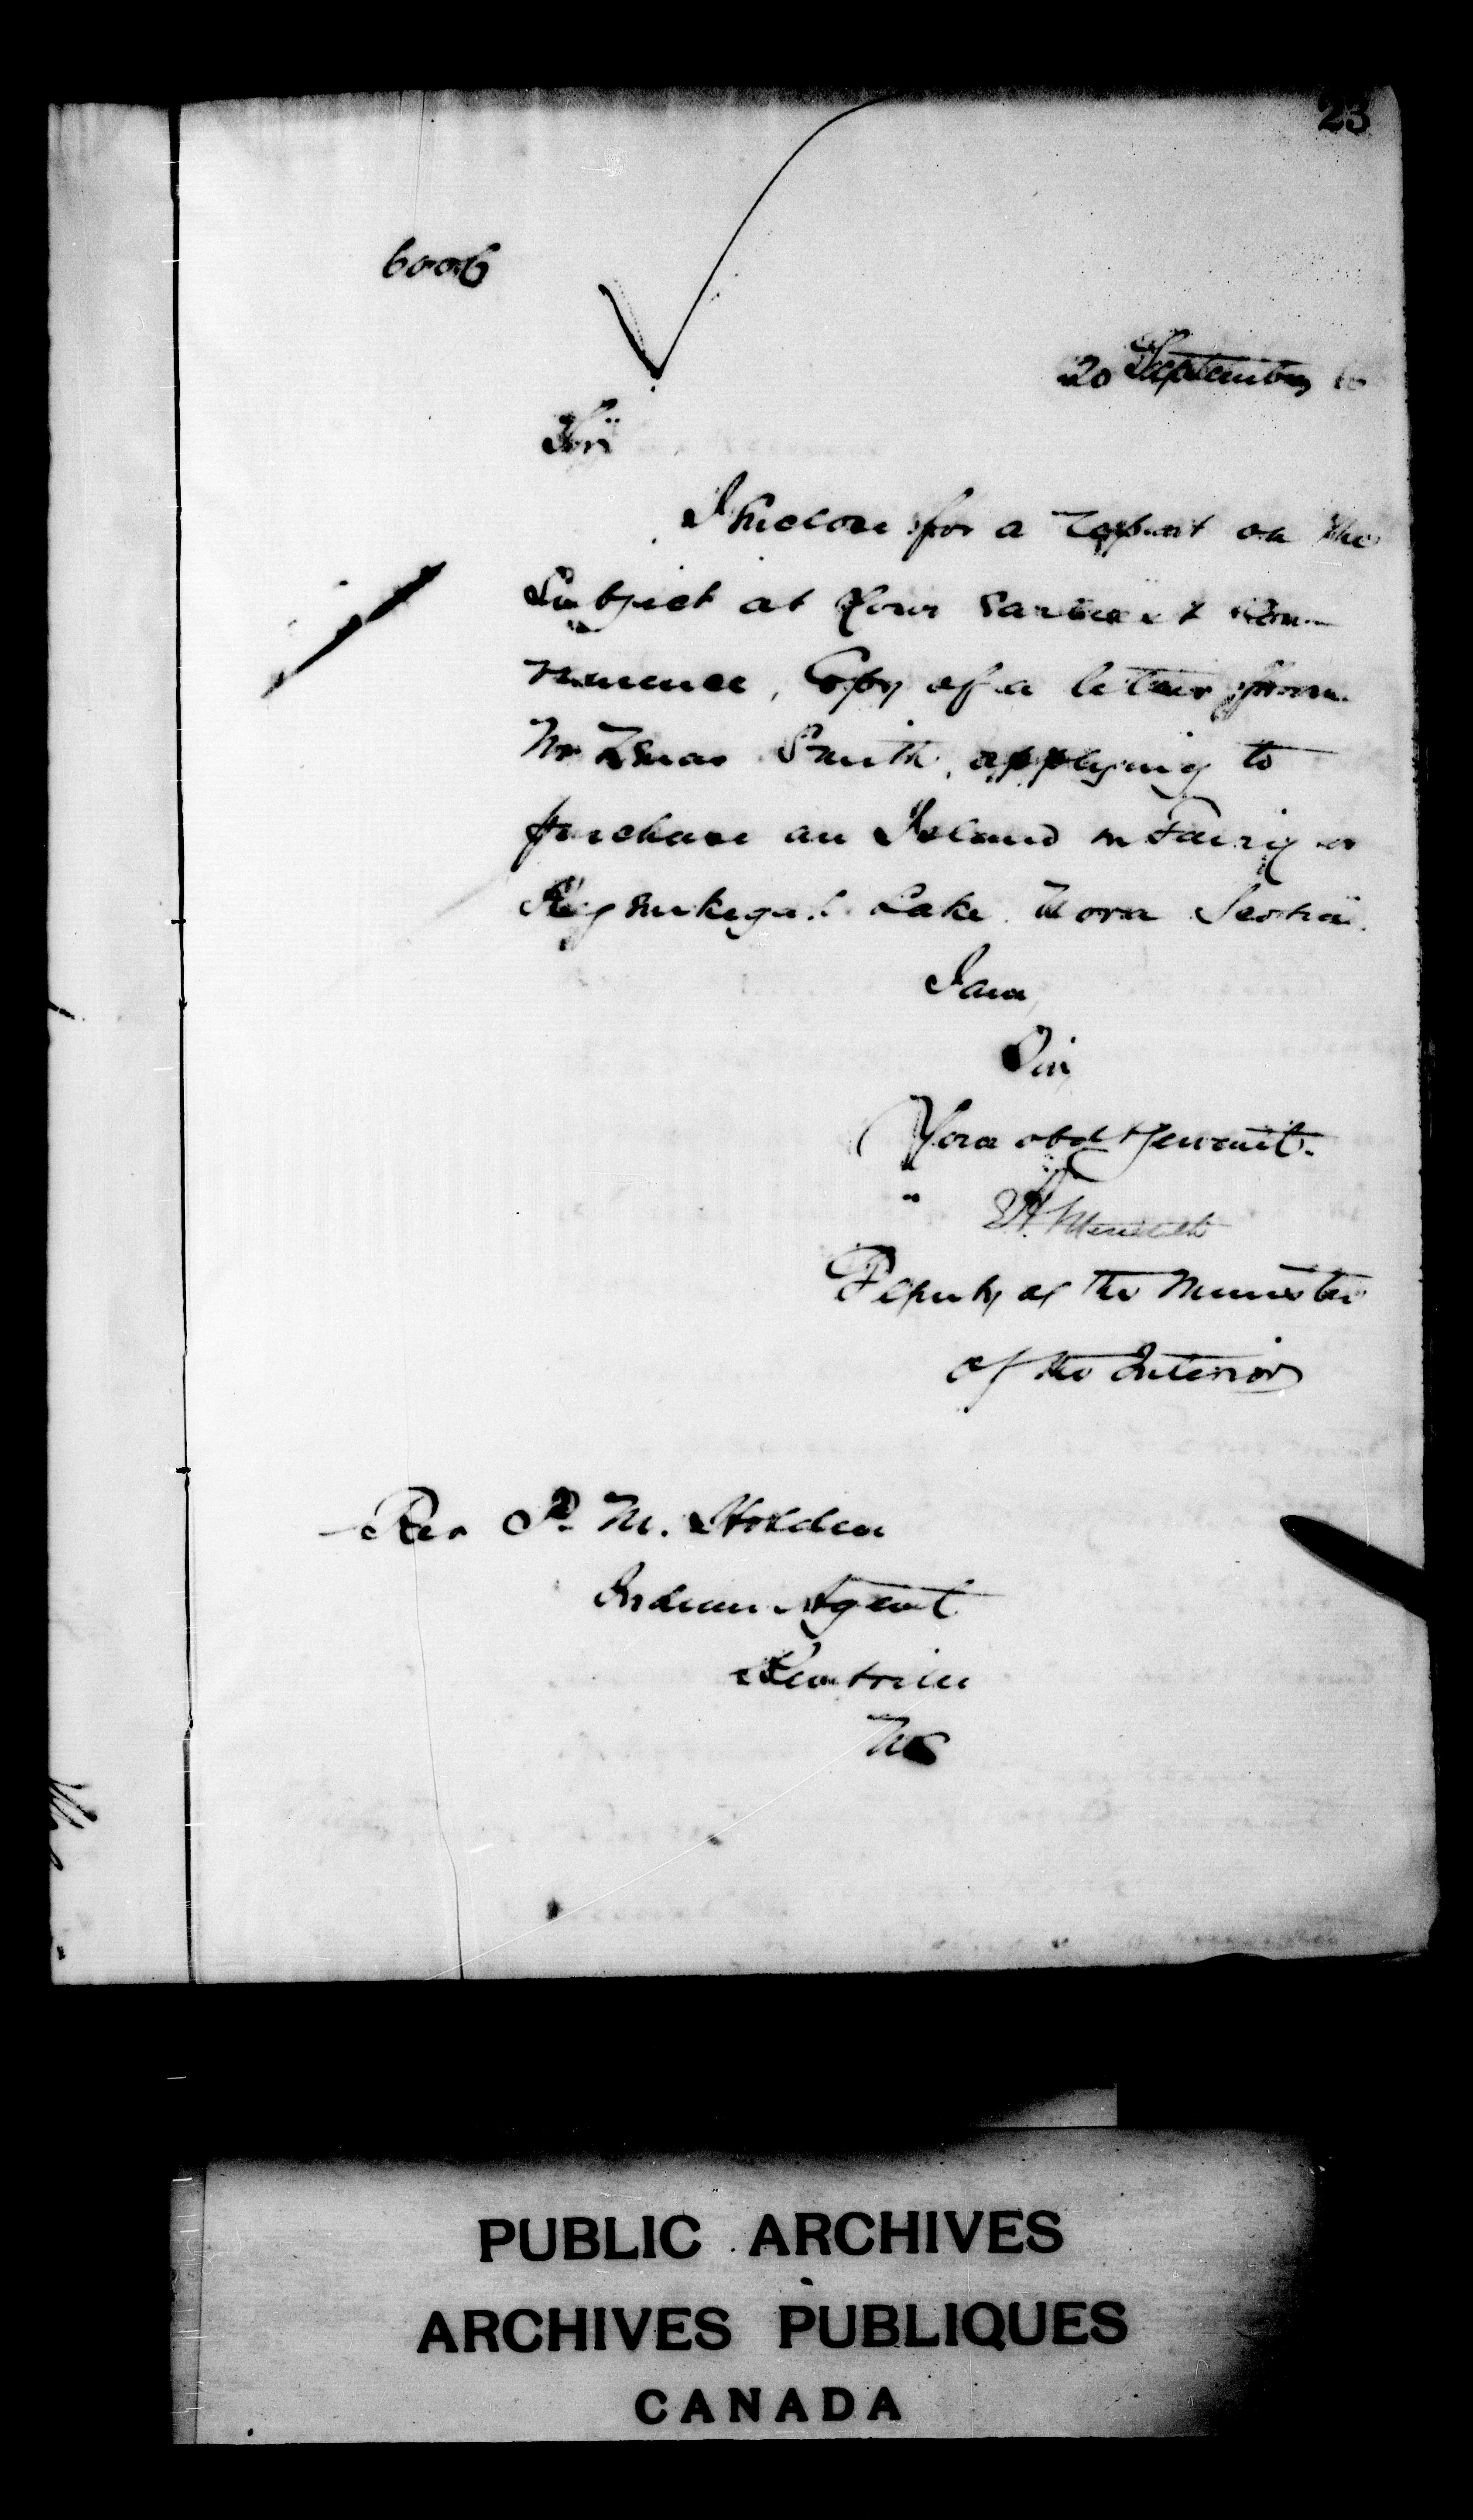 23
6006
20 September
Sir
I Inclose for a report on the
Subject at Your Earliest Con-
venience, Copy of a letter from
Mr Smith, applying to
purchase an Island in Fairy or
Lake Nova Scotia.
I am,
Sir,
Your obdt Servant.
E A Meredith
Deputy of the Minister
of the Interior
Rev P. M. Holden
Indian Agent
Kentville
NS
PUBLIC ARCHIVES
ARCHIVES PUBLIQUES
CANADA